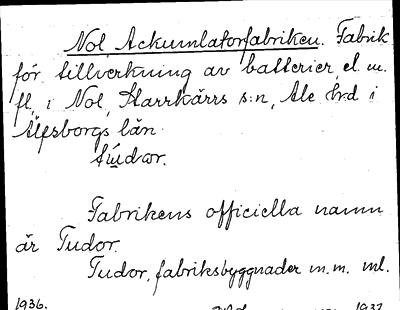 Nol, Ackumulatorfabriken. Fabrik
för tillverkning av batterier, el. m.
fl., i Nol, Starrkärrs s:n, Ale hrd i
Älfsborgs län.
Tudor.
Fabrikens officiella namn
är Tudor.
Tudor, fabriksbyggnader m.m. ml.
1936. 1937